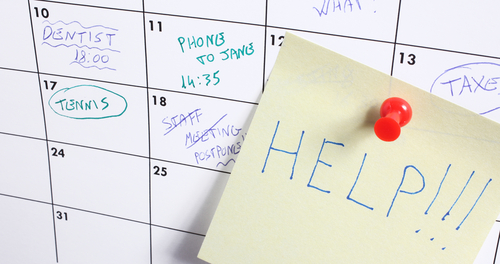 WHAT?
10
DENTIST
18.00
11
PHONE
TO JANE
14:35
12
13
TAXE
17
TENNIS
18
STAFF
MEETING
POSTPONE
HELP!!!
24
25
31